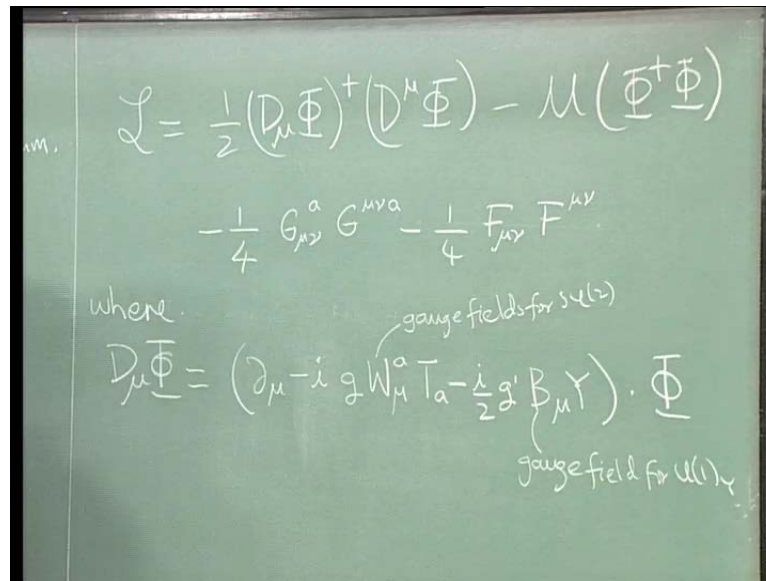 um.
ℒ = 1/2 (D_μ Φ)^† (D^μ Φ) − U(Φ^† Φ)
− 1/4 G_{μν}^a G^{μνa} − 1/4 F_{μν} F^{μν}
where.
gauge fields for SU(2)
D_μ Φ = (∂_μ − i g W_μ^a T_a − i/2 g' B_μ Y) . Φ
gauge field for U(1)_Y